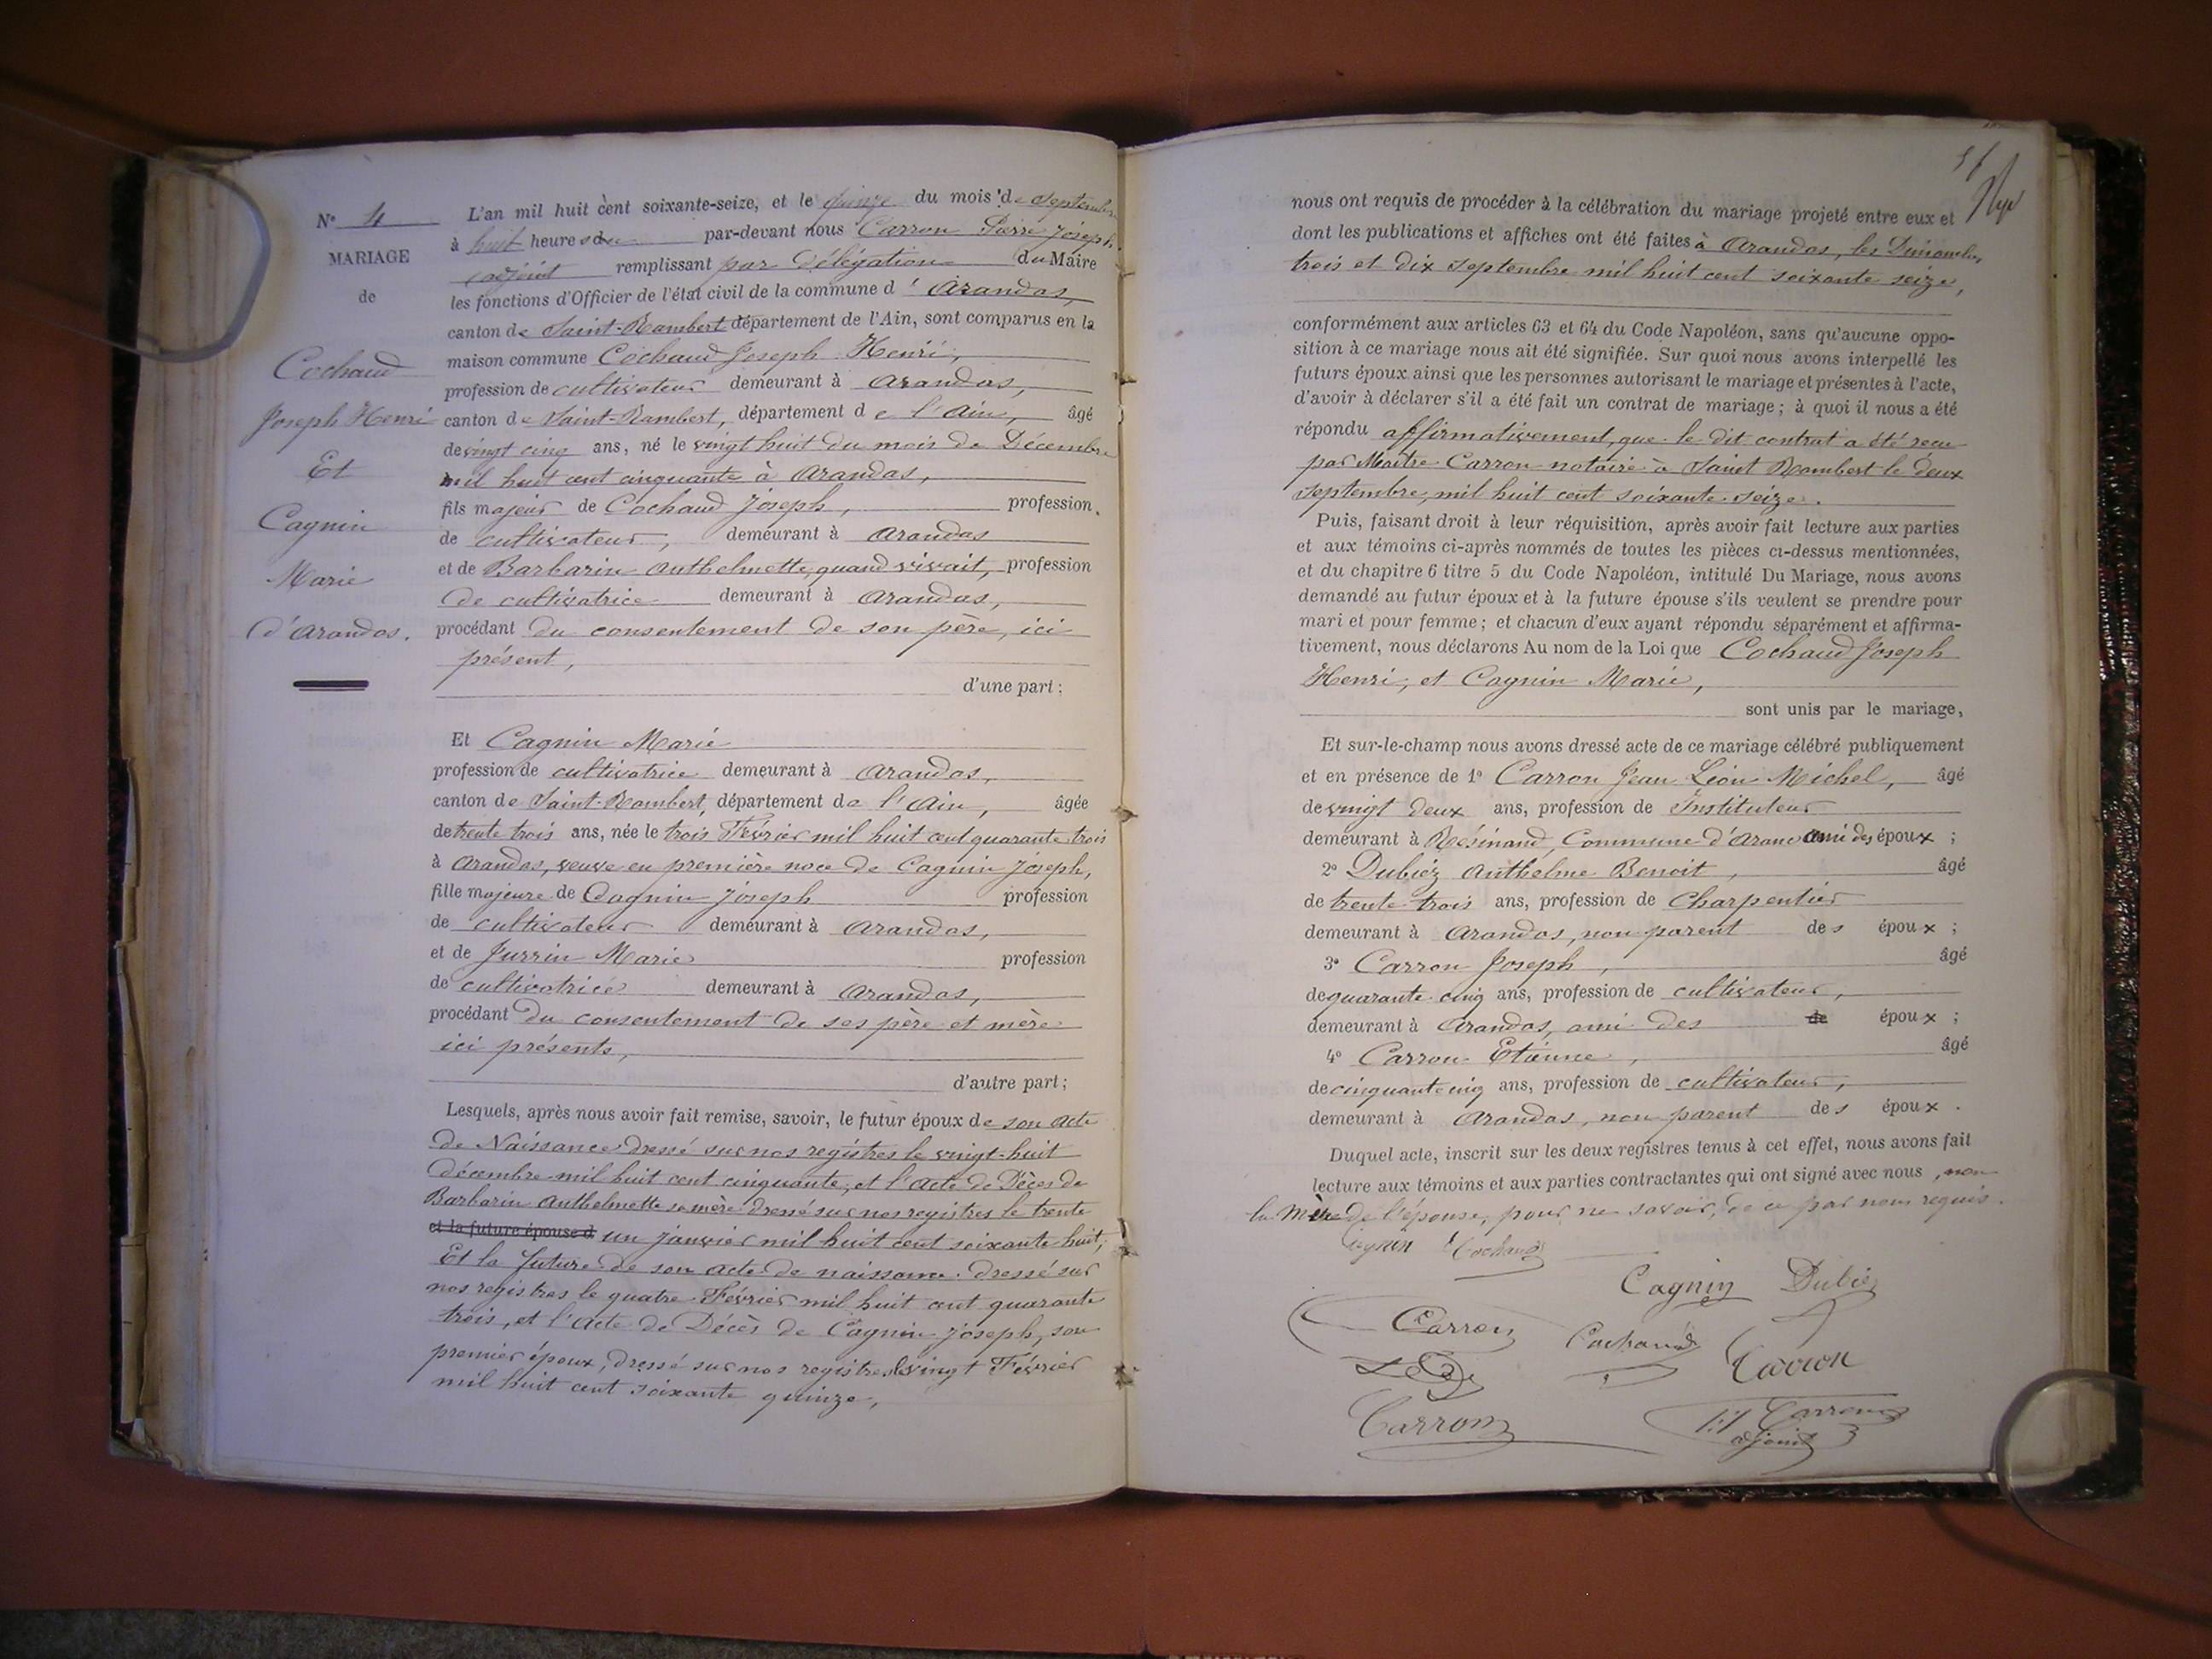 N° 4
MARIAGE
de
Cochaud
Joseph Henri
Et
Cagnin
Marie
d'Arandas.
L'an mil huit cent soixante-seize, et le quinze du mois de Septembre
à huit heures du par-devant nous Carron Pierre Joseph
adjoint remplissant par Délégation du Maire
les fonctions d'Officier de l'état civil de la commune d'Arandas,
canton de Saint-Rambert département de l'Ain, sont comparus en la
maison commune Cochaud Joseph Henri,
profession de cultivateur demeurant à Arandas,
canton de Saint-Rambert, département de l'Ain, âgé
de vingt cinq ans, né le vingt huit du mois de Décembre
mil huit cent cinquante à Arandas,
fils majeur de Cochaud Joseph, profession
de cultivateur, demeurant à Arandas
et de Barbarin Anthelmette, quand vivait, profession
de cultivatrice demeurant à Arandas,
procédant du consentement de son père, ici
présent,
d'une part:
Et Cagnin Marie
profession de cultivatrice demeurant à Arandas,
canton de Saint-Rambert, département de l'Ain, âgée
de trente trois ans, née le trois Février mil huit cent quarante trois
à Arandas, veuve en première noce de Cagnin Joseph,
fille majeure de Cagnin Joseph profession
de cultivateur demeurant à Arandas,
et de Jurrin Marie profession
de cultivatrice demeurant à Arandas,
procédant du consentement de ses père et mère
ici présents,
d'autre part;
Lesquels, après nous avoir fait remise, savoir, le futur époux de son acte
de Naissance dressé sur nos registres le vingt-huit
décembre mil huit cent cinquante, et l'acte de Décès de
Barbarin Anthelmette sa mère dressé sur nos registres le trente
et la future épouse d un janvier mil huit cent soixante huit;
Et la future de son acte de naissance dressé sur
nos registres le quatre Février mil huit cent quarante
trois, et l'acte de Décès de Cagnin Joseph, son
premier époux, dressé sur nos registres le vingt Février
mil huit cent soixante quinze,
nous ont requis de procéder à la célébration du mariage projeté entre eux et
dont les publications et affiches ont été faites à Arandas, les Dimanches
trois et dix septembre mil huit cent soixante seize,
conformément aux articles 63 et 64 du Code Napoléon, sans qu'aucune oppo-
sition à ce mariage nous ait été signifiée. Sur quoi nous avons interpellé les
futurs époux ainsi que les personnes autorisant le mariage et présentes à l'acte,
d'avoir à déclarer s'il a été fait un contrat de mariage; à quoi il nous a été
répondu affirmativement, que le dit contrat a été recu
par Maître Carron notaire à Saint Rambert le deux
septembre, mil huit cent soixante-seize.
Puis, faisant droit à leur réquisition, après avoir fait lecture aux parties
et aux témoins ci-après nommés de toutes les pièces ci-dessus mentionnées,
et du chapitre 6 titre 5 du Code Napoléon, intitulé Du Mariage, nous avons
demandé au futur époux et à la future épouse s'ils veulent se prendre pour
mari et pour femme; et chacun d'eux ayant répondu séparément et affirma-
tivement, nous déclarons Au nom de la Loi que Cochaud Joseph
Henri, et Cagnin Marie,
sont unis par le mariage,
Et sur-le-champ nous avons dressé acte de ce mariage célébré publiquement
et en présence de 1° Carron Jean Léon Michel, âgé
de vingt deux ans, profession de Instituteur
demeurant à Résinand, Commune d'Aranc ami des époux;
2° Dubiez Anthelme Benoit, âgé
de trente trois ans, profession de Charpentier
demeurant à Arandas, non parent des époux;
3° Carron Joseph, âgé
de quarante cinq ans, profession de cultivateur,
demeurant à Arandas, ami des de époux;
4° Carron Etienne, âgé
de cinquante cinq ans, profession de cultivateur,
demeurant à Arandas, non parent des époux.
Duquel acte, inscrit sur les deux registres tenus à cet effet, nous avons fait
lecture aux témoins et aux parties contractantes qui ont signé avec nous, non
la Mère de l'épouse, pour ne savoir, de ce par nous requis.
Cochaud
Cagnin Dubiez
Carron Cochaud Carron
Carron Carron
adjoint